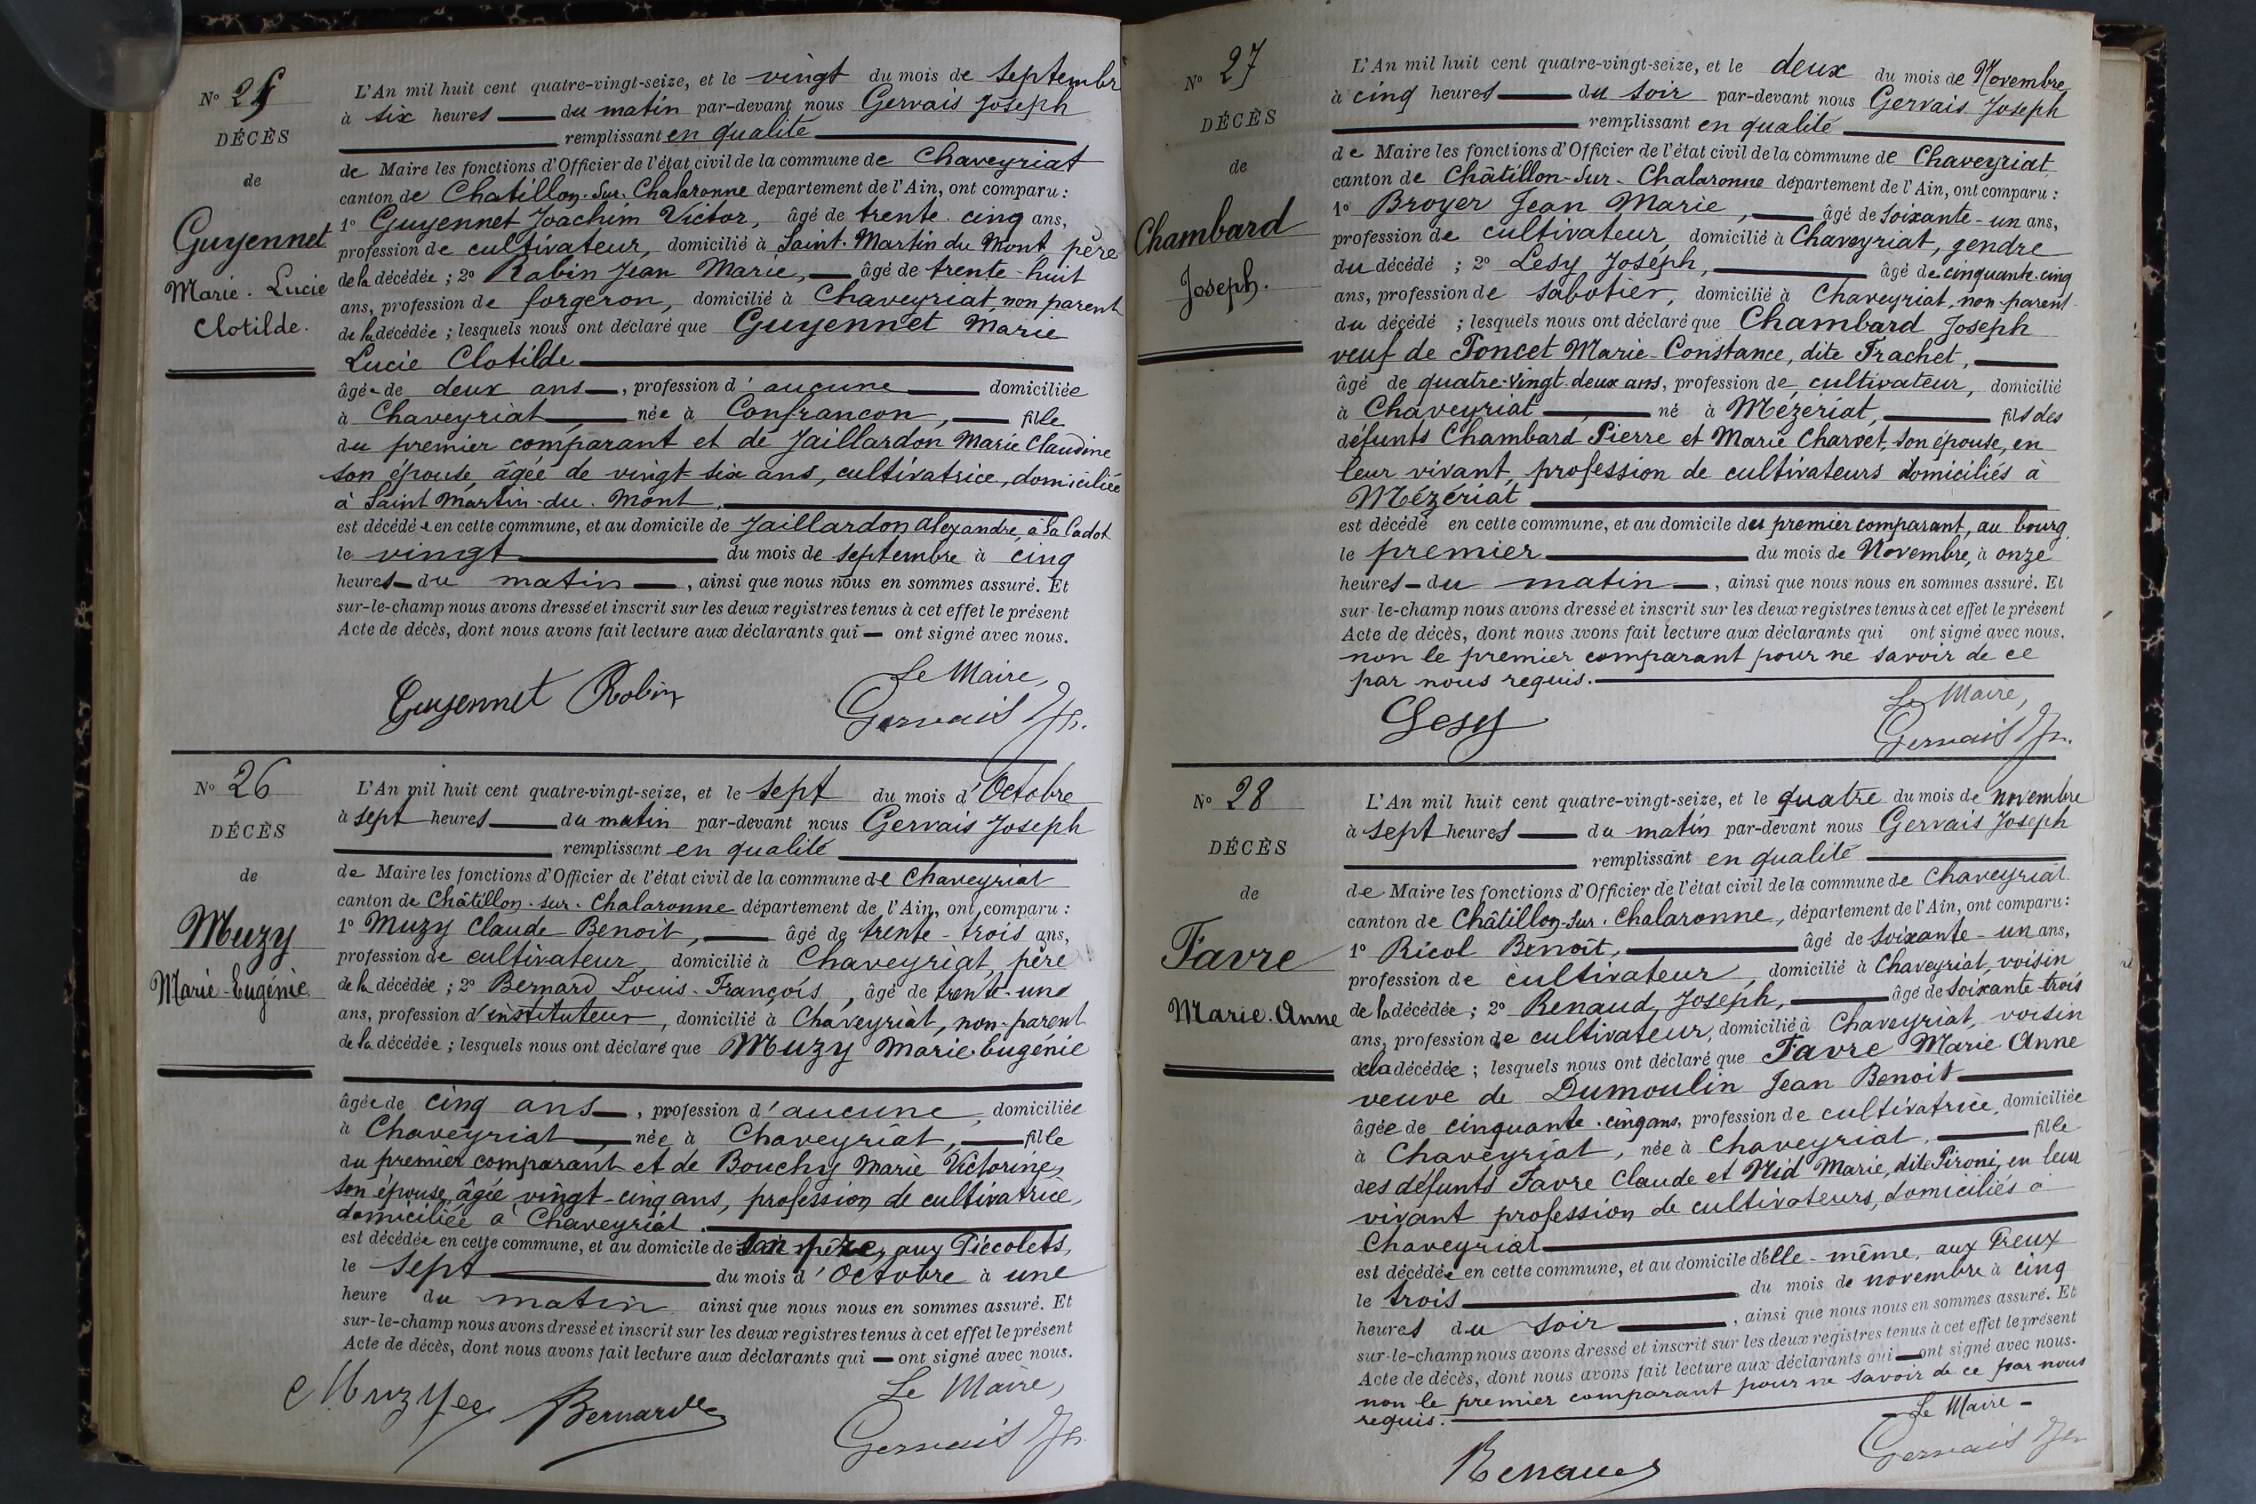 N° 25
DÉCÈS
de
Guyennet
Marie. Lucie
Clotilde.
L'An mil huit cent quatre-vingt-seize, et le vingt du mois de Septembre
à six heures du matin par-devant nous Gervais Joseph
remplissant en qualité
de Maire les fonctions d'Officier de l'état civil de la commune de Chaveyriat
canton de Chatillon-Sur-Chalaronne département de l'Ain, ont comparu :
1° Guyennet Joachim Victor, âgé de trente-cinq ans,
profession de cultivateur, domicilié à Saint-Martin du Mont père
de la décédée ; 2° Robin Jean Marie, âgé de trente-huit
ans, profession de forgeron, domicilié à Chaveyriat, non parent
de la décédée ; lesquels nous ont déclaré que Guyennet Marie
Lucie Clotilde
âgée de deux ans, profession d'aucune domiciliée
à Chaveyriat, née à Confrancon, fille
du premier comparant et de Jaillardon Marie Claudine
son épouse, âgée de vingt-six ans, cultivatrice, domiciliée
à Saint Martin-du-Mont.
est décédée en cette commune, et au domicile de Jaillardon Alexandre, à la Cadot
le vingt du mois de septembre à cinq
heures du matin, ainsi que nous nous en sommes assuré. Et
sur-le-champ nous avons dressé et inscrit sur les deux registres tenus à cet effet le présent
Acte de décès, dont nous avons fait lecture aux déclarants qui ont signé avec nous.
Le Maire,
Guyennet Robin Gervais Jh.
N° 26
DÉCÈS
de
Muzy
Marie-Eugénie
L'An mil huit cent quatre-vingt-seize, et le sept du mois d'Octobre
à sept heures du matin par-devant nous Gervais Joseph
remplissant en qualité
de Maire les fonctions d'Officier de l'état civil de la commune de Chaveyriat
canton de Châtillon-sur-Chalaronne département de l'Ain, ont comparu :
1° Muzy Claude Benoit, âgé de trente-trois ans,
profession de cultivateur, domicilié à Chaveyriat, père
de la décédée ; 2° Bernard Louis-François, âgé de trente-une
ans, profession d'instituteur, domicilié à Chaveyriat, non-parent
de la décédée ; lesquels nous ont déclaré que Muzy Marie-Eugénie
âgée de cinq ans, profession d'aucune, domiciliée
à Chaveyriat, née à Chaveyriat, fille
du premier comparant et de Bouchy Marie Victorine,
son épouse, âgée vingt-cinq ans, profession de cultivatrice,
domiciliée à Chaveyriat.
est décédée en cette commune, et au domicile de son père, aux Piccolets,
le sept du mois d'Octobre à une
heure du matin ainsi que nous nous en sommes assuré. Et
sur-le-champ nous avons dressé et inscrit sur les deux registres tenus à cet effet le présent
Acte de décès, dont nous avons fait lecture aux déclarants qui ont signé avec nous.
Le Maire,
Muzy Bernard Gervais Jh.
N° 27
DÉCÈS
de
Chambard
Joseph.
L'An mil huit cent quatre-vingt-seize, et le deux du mois de Novembre
à cinq heures du soir par-devant nous Gervais Joseph
remplissant en qualité
de Maire les fonctions d'Officier de l'état civil de la commune de Chaveyriat
canton de Châtillon-Sur-Chalaronne département de l'Ain, ont comparu :
1° Broyer Jean Marie, âgé de soixante-un ans,
profession de cultivateur, domicilié à Chaveyriat, gendre
du décédé ; 2° Lesy Joseph, âgé de cinquante-cinq
ans, profession de sabotier, domicilié à Chaveyriat, non-parent
du décédé ; lesquels nous ont déclaré que Chambard Joseph
veuf de Poncet Marie-Constance, dite Trachet,
âgé de quatre-vingt-deux ans, profession de cultivateur, domicilié
à Chaveyriat, né à Mézériat, fils des
défunts Chambard Pierre et Marie Charvet, son épouse, en
leur vivant, profession de cultivateurs domiciliés à
Mézériat
est décédé en cette commune, et au domicile du premier comparant, au bourg
le premier du mois de Novembre, à onze
heures du matin, ainsi que nous nous en sommes assuré. Et
sur-le-champ nous avons dressé et inscrit sur les deux registres tenus à cet effet le présent
Acte de décès, dont nous avons fait lecture aux déclarants qui ont signé avec nous.
non le premier comparant pour ne savoir de ce
par nous requis.
Le Maire,
Lesy Gervais Jh.
N° 28
DÉCÈS
de
Favre
Marie-Anne
L'An mil huit cent quatre-vingt-seize, et le quatre du mois de novembre
à sept heures du matin par-devant nous Gervais Joseph
remplissant en qualité
de Maire les fonctions d'Officier de l'état civil de la commune de Chaveyriat
canton de Châtillon-Sur-Chalaronne, département de l'Ain, ont comparu :
1° Ricol Benoît, âgé de soixante-un ans,
profession de cultivateur, domicilié à Chaveyriat, voisin
de la décédée ; 2° Renaud Joseph, âgé de soixante-trois
ans, profession de cultivateur, domicilié à Chaveyriat, voisin
de la décédée ; lesquels nous ont déclaré que Favre Marie Anne
veuve de Dumoulin Jean Benoit
âgée de cinquante-cinq ans, profession de cultivatrice, domiciliée
à Chaveyriat, née à Chaveyriat, fille
des défunts Favre Claude et Nid Marie, dite Pironi, en leur
vivant profession de cultivateurs, domiciliés à
Chaveyriat
est décédée en cette commune, et au domicile d'elle-même, aux Preux
le trois du mois de novembre à cinq
heures du soir, ainsi que nous nous en sommes assuré. Et
sur-le-champ nous avons dressé et inscrit sur les deux registres tenus à cet effet le présent
Acte de décès, dont nous avons fait lecture aux déclarants qui ont signé avec nous.
non le premier comparant pour ne savoir de ce par nous
requis.
Le Maire
Renaud Gervais Jh